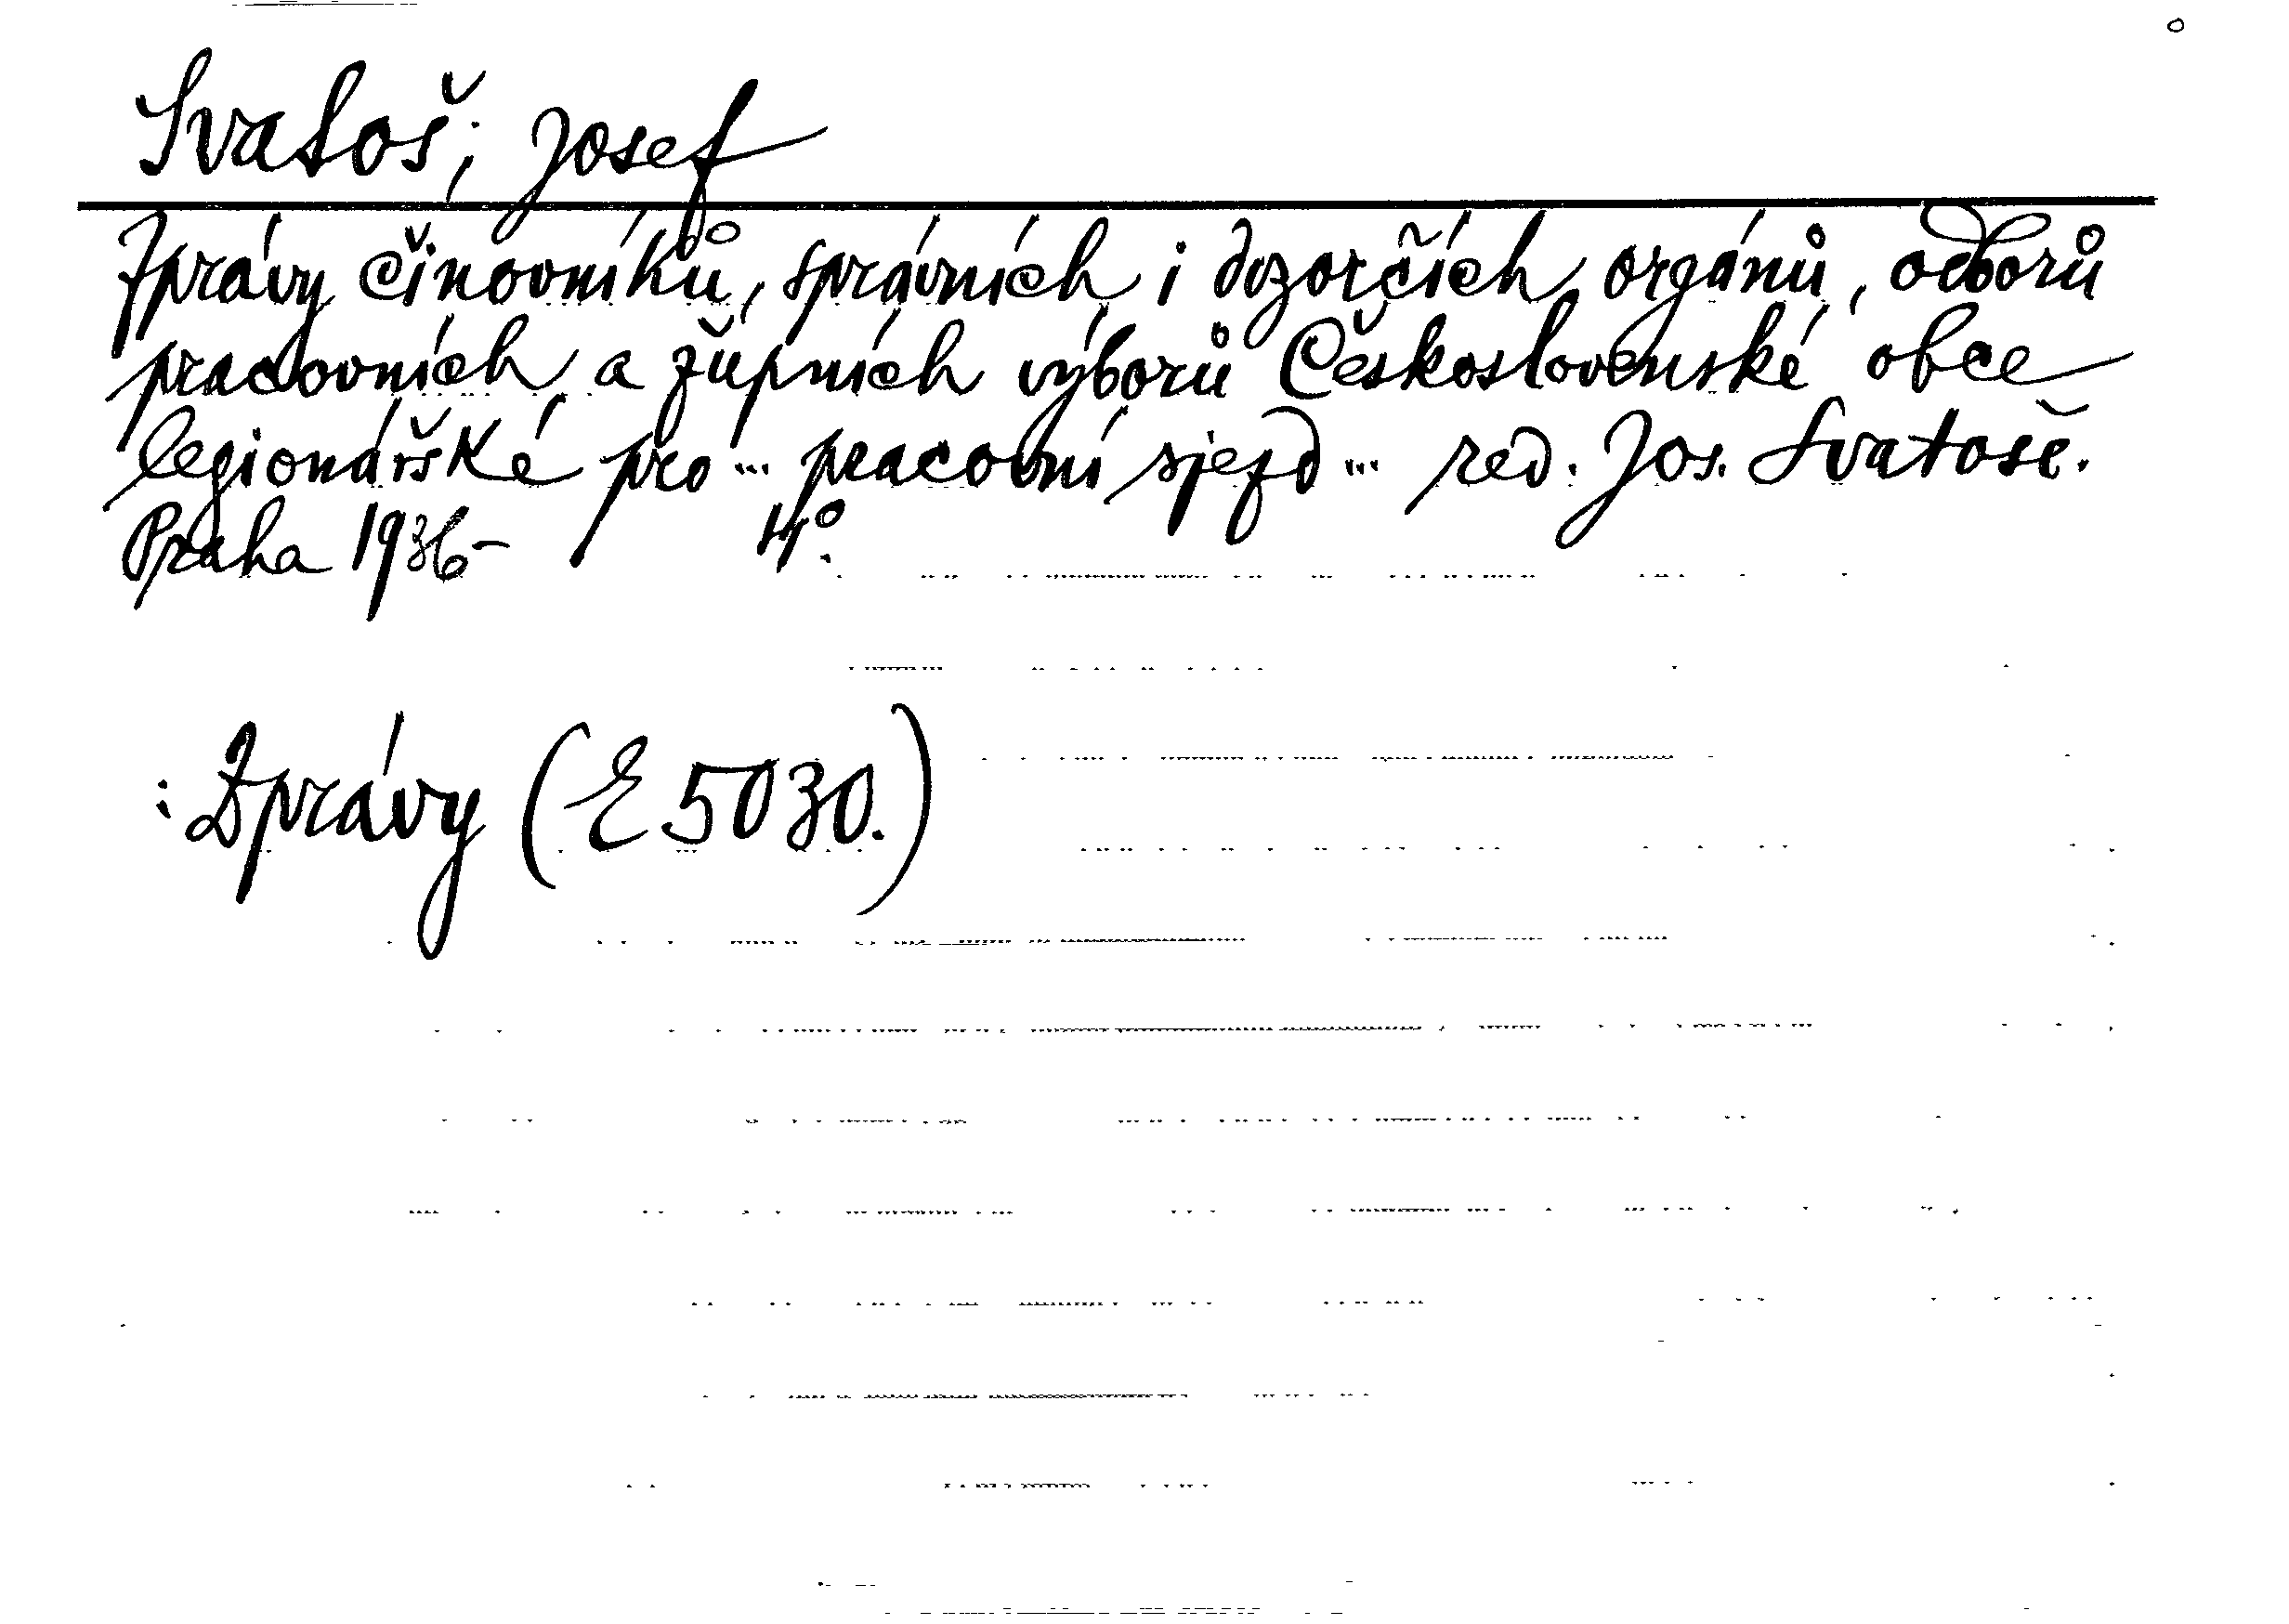 Svatoš, Josef
Zprávy činovníků, správních i dozorčích orgánů, odborů
pracovních a župních výborů Československé obce
legionářské pro ... pracovní sjezd ... red. Jos. Svatoš.
Praha 1936- 4°.
: Zprávy (E 5030.)